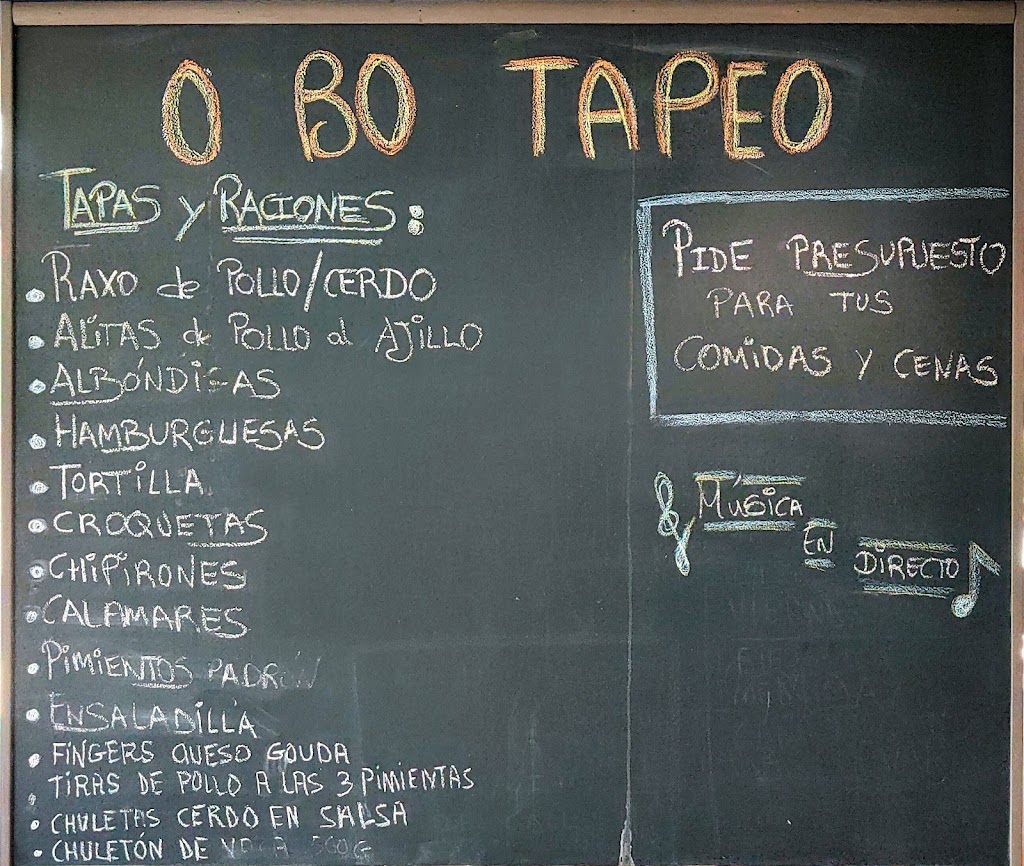 O BO TAPEO
TAPAS y RACIONES:
RAXO de POLLO/CERDO
ALITAS de POLLO al AJILLO
ALBÓNDIGAS
HAMBURGUESAS
TORTILLA
CROQUETAS
CHIPIRONES
CALAMARES
PIMIENTOS PADRÓN
ENSALADILLA
FINGERS QUESO GOUDA
TIRAS DE POLLO A LAS 3 PIMIENTAS
CHULETAS CERDO EN SALSA
CHULETÓN DE
PIDE PRESUPUESTO
PARA TUS
COMIDAS Y CENAS
MÚSICA
EN
DIRECTO